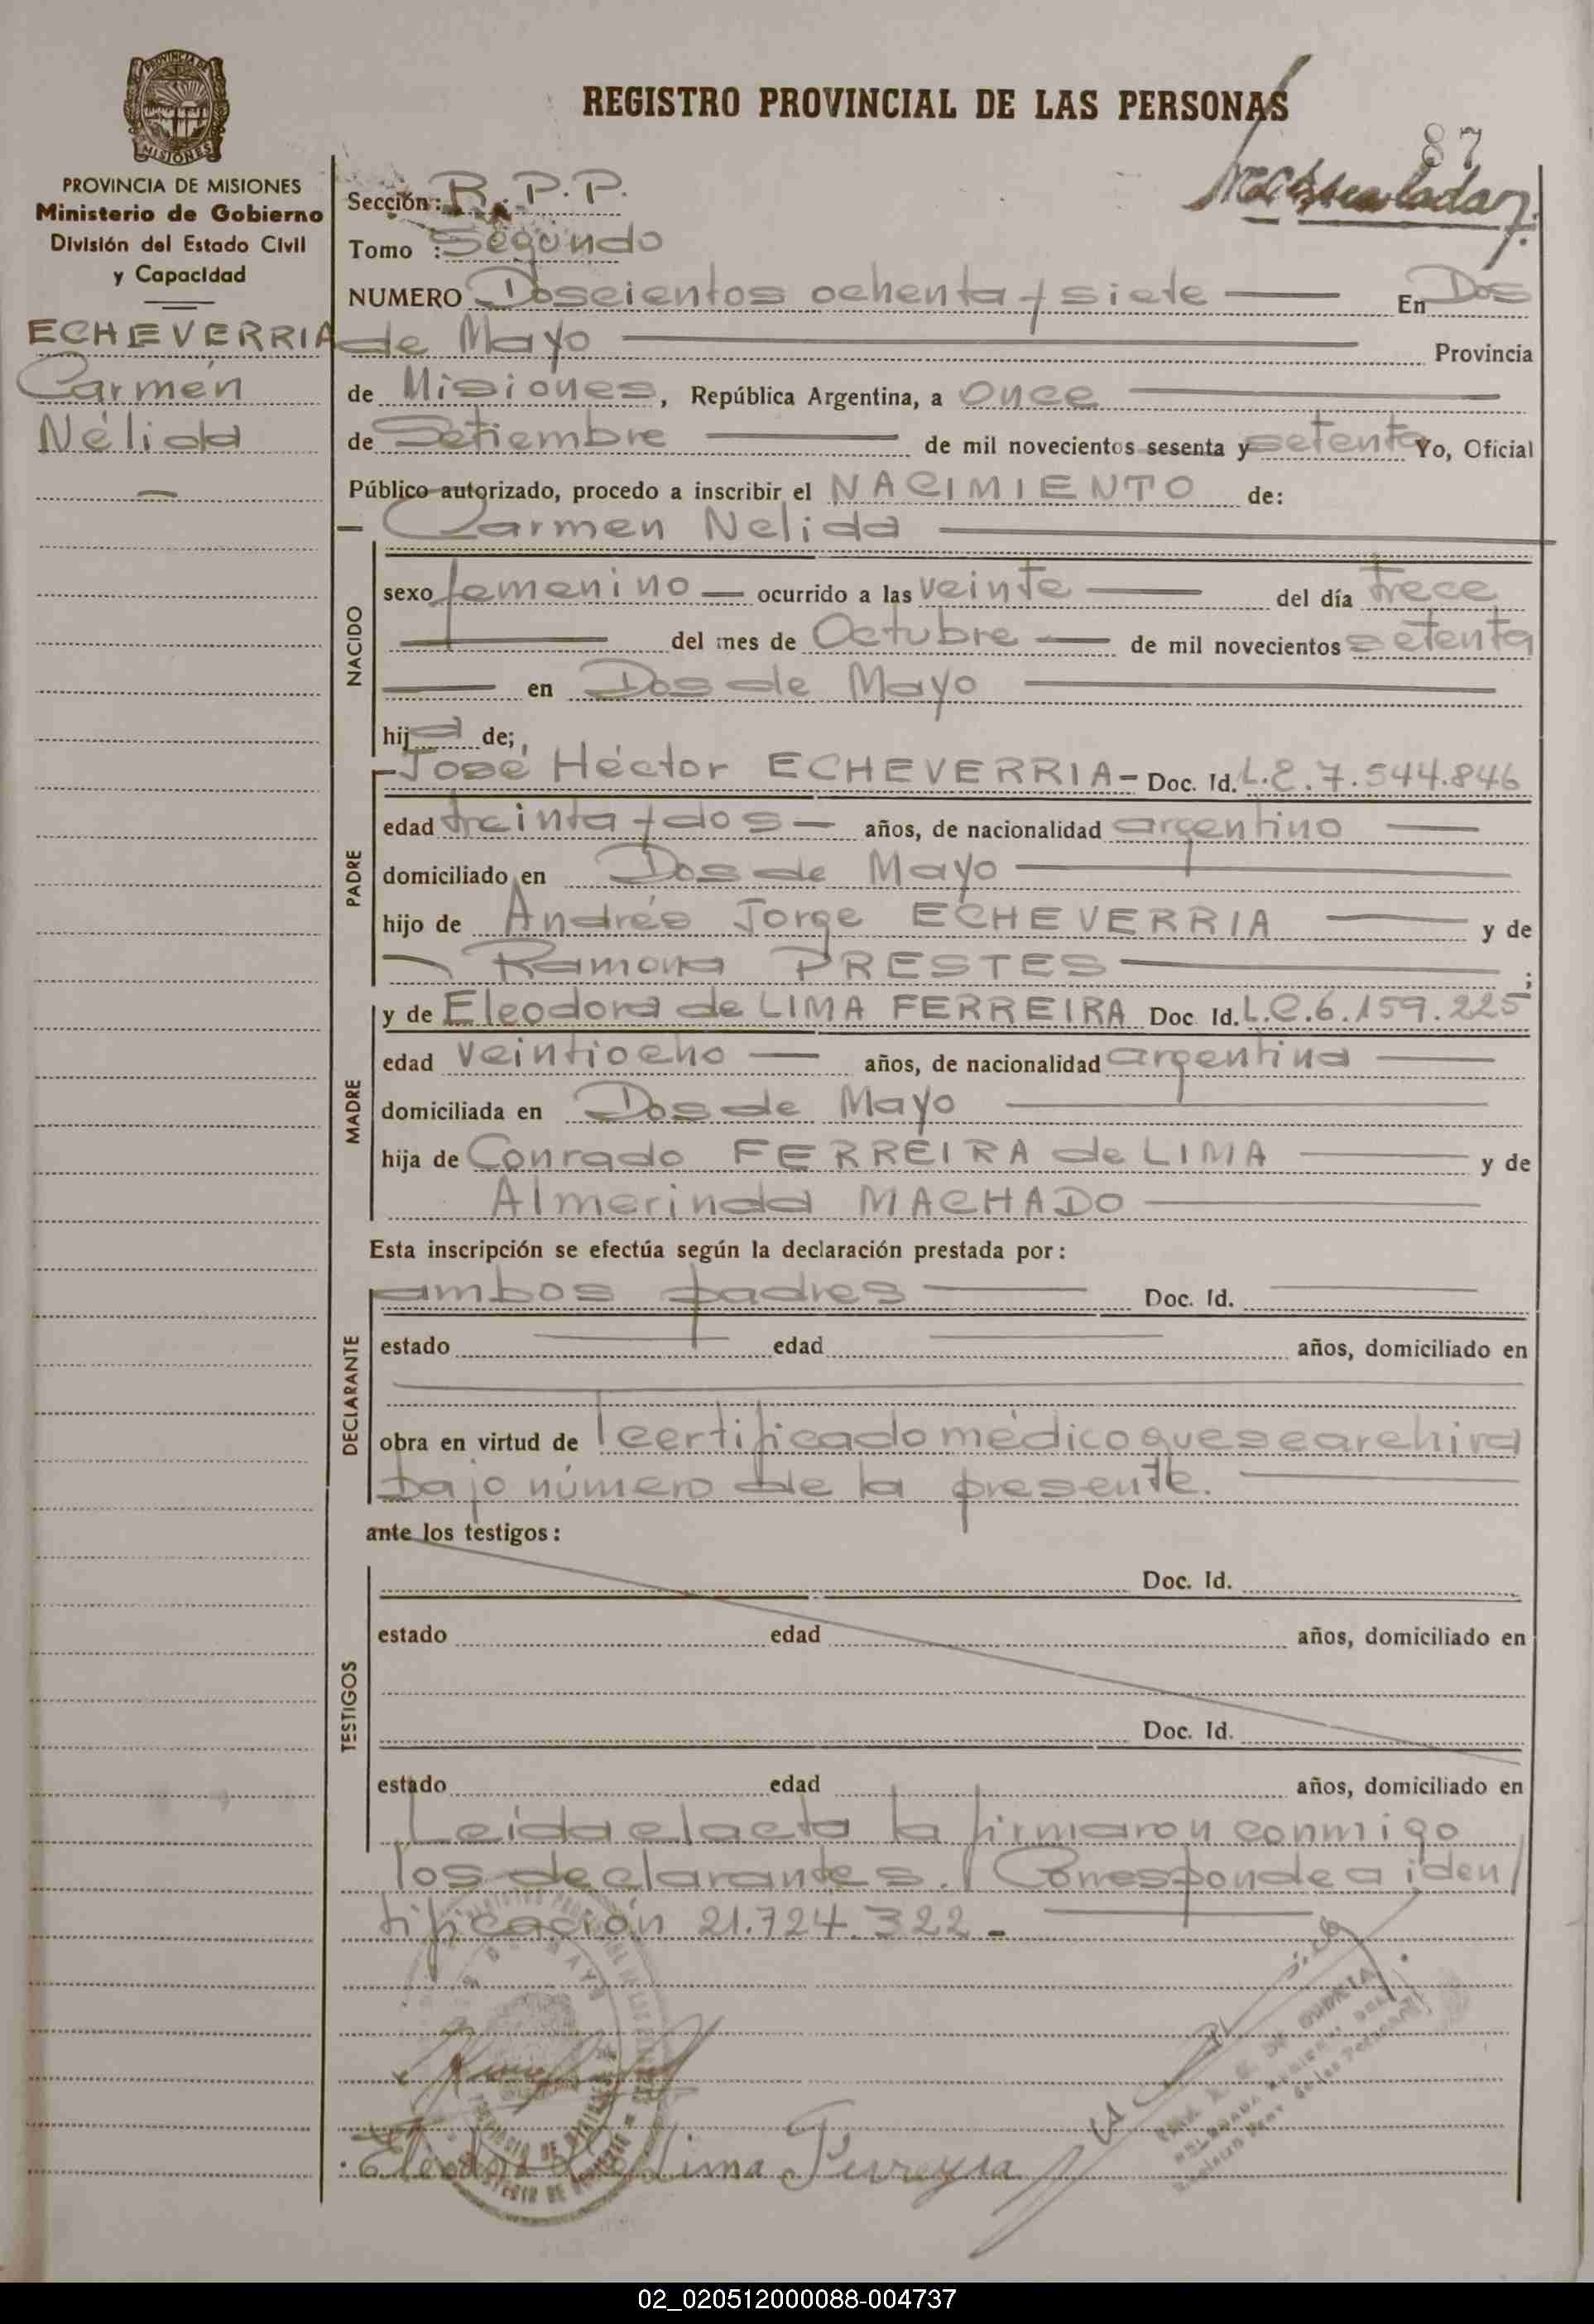 REGISTRO PROVINCIAL DE LAS PERSONAS
87
MISIONES
PROVINCIA DE MISIONES
Ministerio de Gobierno
División del Estado Civil
y Capacidad
ECHEVERRIA
Carmen
Nélida
Sección: R.P.P.
Tomo : Segundo
NUMERO Doscientos ochenta y siete En Dos
de Mayo Provincia
de Misiones, República Argentina, a once
de Setiembre de mil novecientos sesenta y setenta Yo, Oficial
Público autorizado, procedo a inscribir el NACIMIENTO de:
Carmen Nelida
NACIDO
sexo femenino ocurrido a las veinte del día trece
del mes de Octubre de mil novecientos setenta
en Dos de Mayo
hija de;
PADRE
José Héctor ECHEVERRIA- Doc. Id. L.E. 7.544.846
edad treinta y dos años, de nacionalidad argentino
domiciliado en Dos de Mayo
hijo de Andrés Jorge ECHEVERRIA y de
Ramona PRESTES ;
MADRE
y de Eleodora de LIMA FERREIRA Doc Id. L.C. 6.159.225
edad veintiocho años, de nacionalidad argentina
domiciliada en Dos de Mayo
hija de Conrado FERREIRA de LIMA y de
Almerinda MACHADO
Esta inscripción se efectúa según la declaración prestada por:
DECLARANTE
ambos padres Doc. Id.
estado edad años, domiciliado en
obra en virtud de certificado médico que se archiva
bajo número de la presente.
ante los testigos:
TESTIGOS
Doc. Id.
estado edad años, domiciliado en
Doc. Id.
estado edad años, domiciliado en
Leída el acta la firmaron conmigo
los declarantes. Corresponde a iden
tificación 21.724.322.-
Eleodora de Lima Ferreyra
02_020512000088-004737